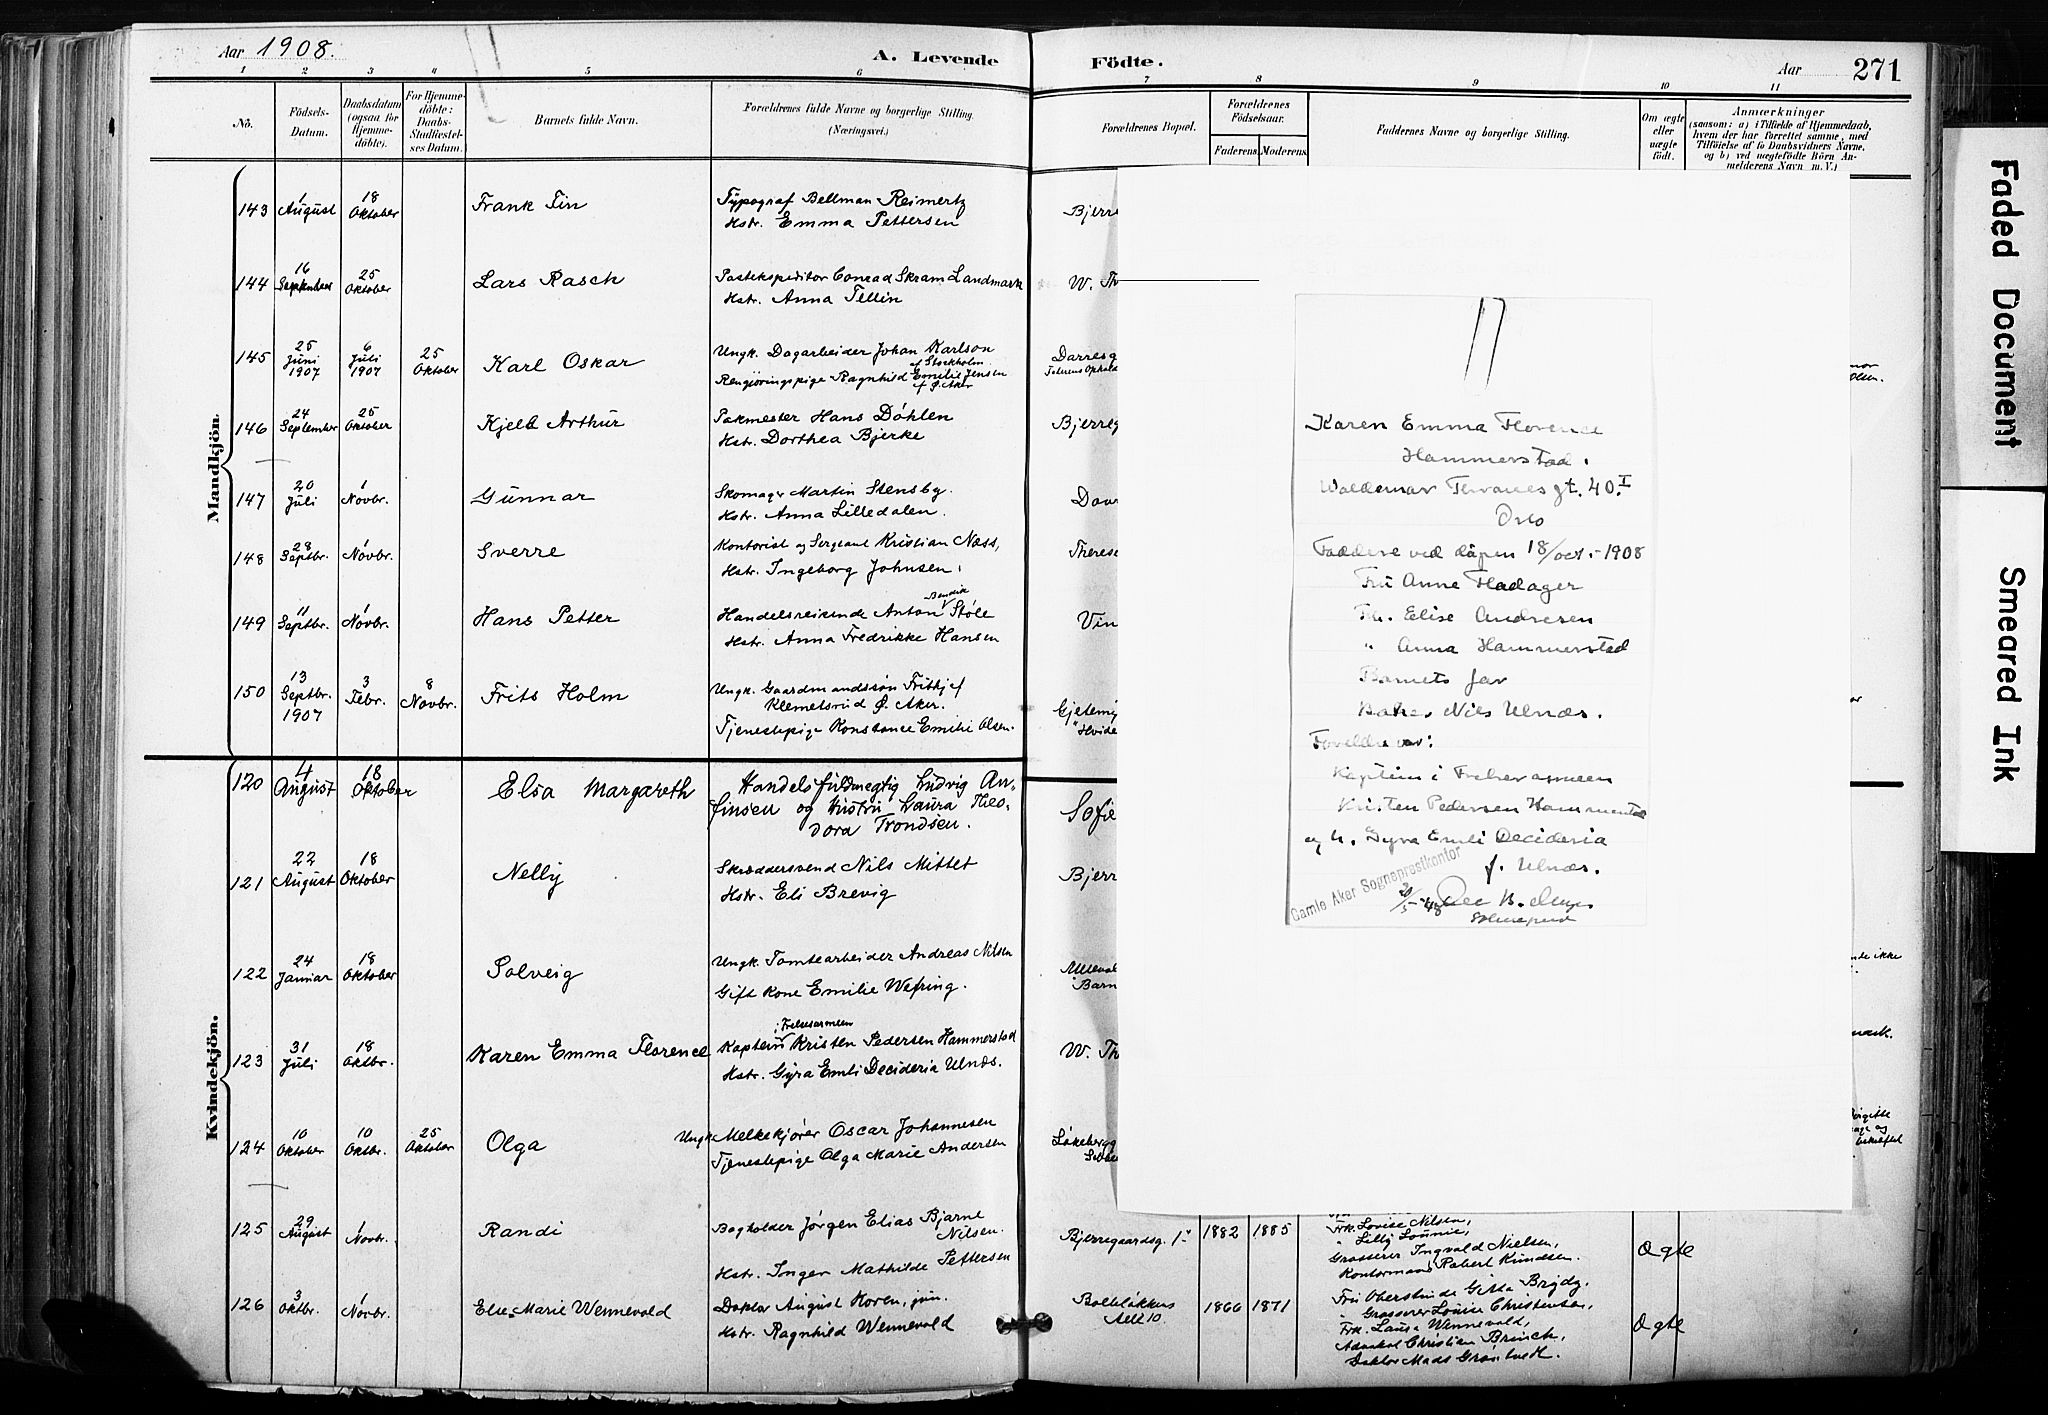 Aar 1908.
A. Levende
Födte.
Aar
271
1 2 3 4 5 6
7 8 9 10 11
No.
Födsels-
Datum.
Daabsdatum
(ogsaa for
Hjemme-
döbte).
For Hjemme-
döbte:
Daabs-
Stadfæstel-
ses Datum.
Barnets fulde Navn.
Forældrenes fulde Navne og borgerlige Stilling.
(Næringsvei.)
Forældrenes Bopæl.
Forældrenes
Födselsaar.
Faderens. Moderens.
Faddernes Navne og borgerlige Stilling.
Om ægte
eller
uægte
født.
Anmærkninger
(saasom: a) i Tilfælde af Hjemmedaab,
hvem der har forrettet samme, med
Tilföielse af to Daabsvidners Navne,
og b) ved uægtefödte Börn An-
melderens Navn m. V.)
Mandkjön.
143 1 August 18 Oktober Frank Finn
Typograf Bellman Reimertz
Hstr. Emma Pettersen
Bjerre
144 16 September 25 Oktober Lars Rasch
Postekspeditor Conrad Skram Landmark
Hstr. Anna Tellin
W. Th
145 25 Juni 1907 6 Juli 1907 25 Oktober Karl Oskar
Ungk. Dagarbeider Johan Karlson
af Stockholm
Rengjöringspige Ragnhild Emilie Jensen
af Ø. Aker
Darresg
Olsen.
146 24 September 25 Oktober Kjell Arthur
Pakmester Hans Döhlen
Hstr. Dorthea Bjerke
Bjerreg
147 20 Juli 1 Novbr. Gunnar
Skomager Martin Stensby.
Hstr. Anna Lilledalen.
148 28 Septbr. 1 Novbr. Sverre
Kontorist og Sergeant Kristian Næss,
Hstr. Ingeborg Johnsen.
Therese
149 11 Septbr. 1 Novbr. Hans Petter
Bendik
Handelsreisende Anton Støle
Hstr. Anna Fredrikke Hansen
Vin
150 13 Septbr. 1907 3 Febr. 8 Novbr. Frits Holm
Ungk. Gaardmandssøn Frithjof
Klemetsrud Ø. Aker.
Tjenestepige Konstance Emilie Olsen.
Gjetemy
Hvide
Kvindekjön.
120 4 August 18 Oktober Elsa Margareth
Handelsfuldmegtig Ludvig An-
finsen og Hustru Laura Theo-
dora Trondsen.
Sofie
121 22 August 18 Oktober Nelly
Skræddersvend Nils Mittet
Hstr. Eli Brevig
Bjerr
122 24 Januar 18 Oktober Solveig
Ungk. Tomtearbeider Andreas Nilsen
Gift Kone Emilie Wefring.
Ulleval
Barn
123 31 Juli 18 Oktbr. Karen Emma Florence
i Frelsesarmeen
Kaptein Kristen Pedersen Hammerstad
Hstr. Gyra Emli Decideria Ulnæs.
W. Th
124 10 Oktober 10 Oktbr. 25 Oktober Olga
Ungk. Melkekjører Oscar Johannesen
Tjenestepige Olga Marie Andersen
Løkebergg
125 29 August 1 Novbr. Randi
Bogholder Jørgen Elias Bjarne
Nilsen.
Hstr. Inger Mathilde Pettersen
Bjerregaardsg. 1 1882 1885
Frk. Lovise Nilsen,
" Lilly Lounie,
Grosserer Ingvald Nielsen,
Kontormand Robert Knudsen.
Ægte
126 3 Oktbr. 1 Novbr. Else Marie Wennevold
Doktor August Koren, jun.
Hstr. Ragnhild Wennevold
Bolteløkkens
Allé 10.
1866 1871
Fru Oberstinde Gitta Brydy.
" Grosserer Louise Christensen,
Frk. Laura Wennevold,
Advokat Christian Brinch,
Doktor Mads Grøntvedt.
Ægte
Karen Emma Florence
Hammerstad.
Waldemar Thranes gt. 40 I
Oslo
Faddere ved dåpen 18/oct. - 1908
Fru Anne Hadager
Fr. Elise Andresen
" Anna Hammerstad
Barnets far
Baker Nils Ulnæs.
Foreldre var:
Kaptein i Frelsesarmeen
Kristen Pedersen Hammerstad
og h. Gyra Emli Decideria
f. Ulnæs.
Gamle Aker Sogneprestkontor
20/5-48
Sokneprest
Faded Document
Smeared Ink